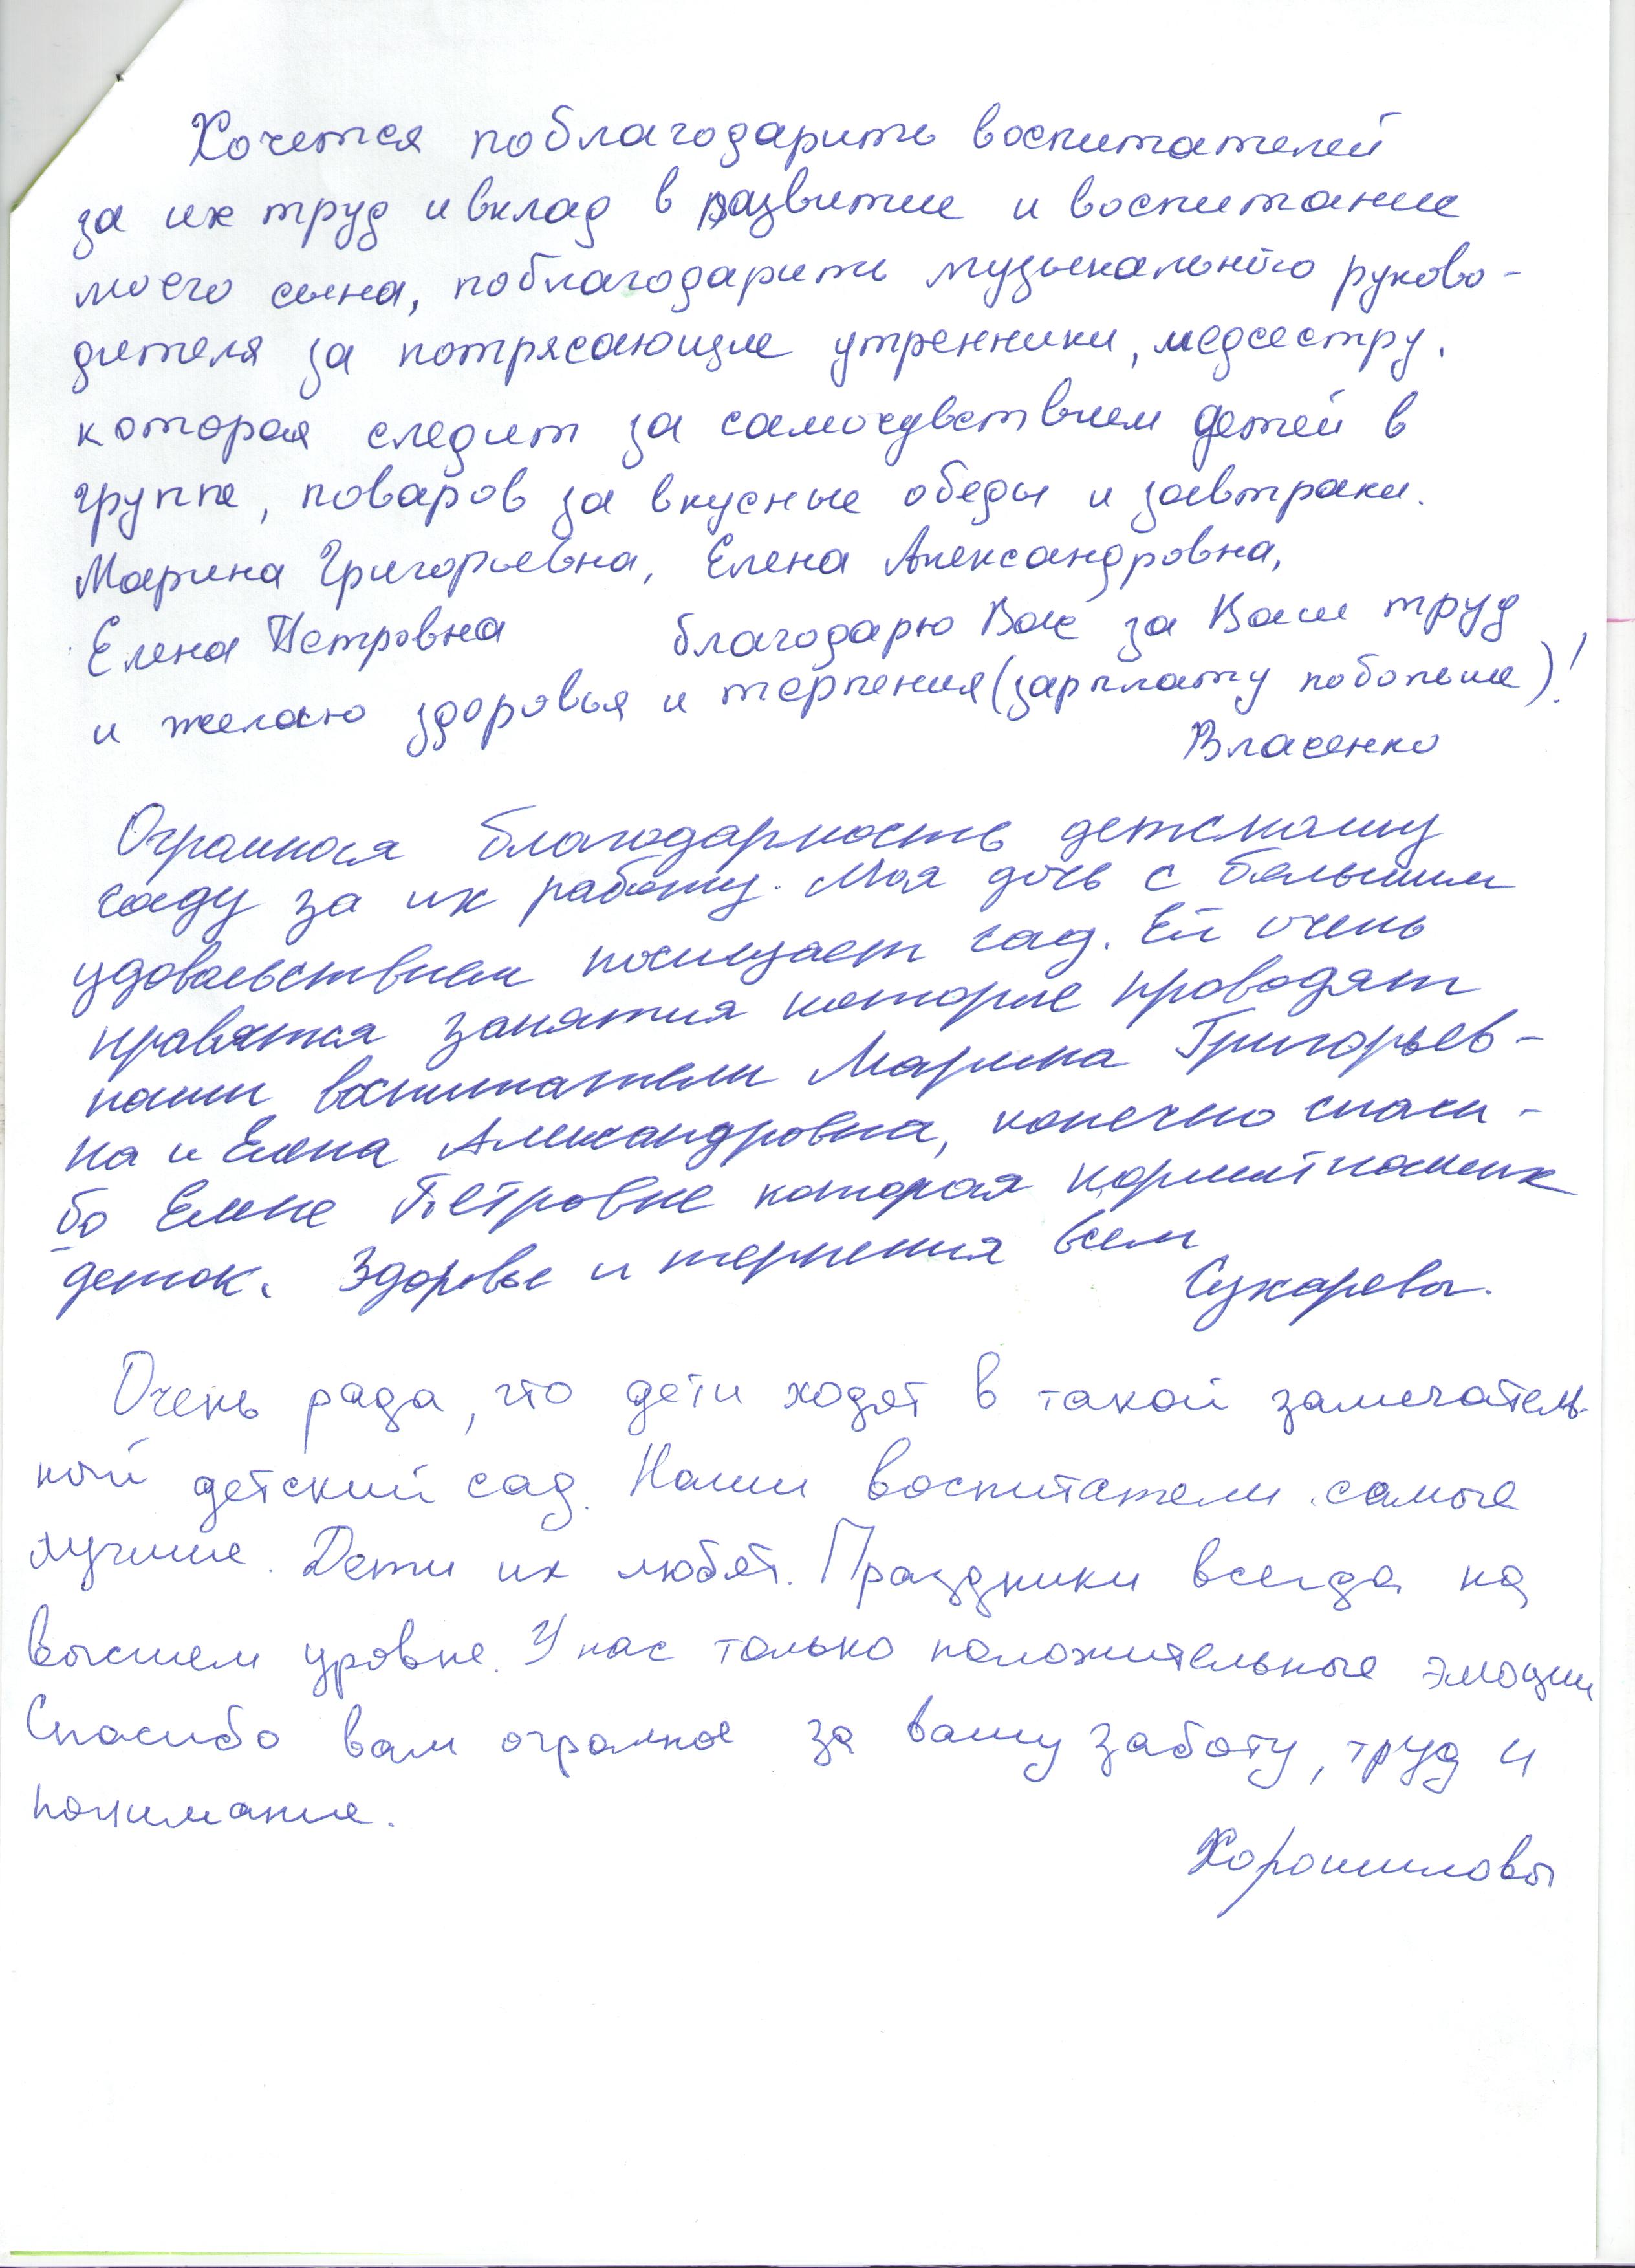 Хочется поблагодарить воспитателей
за их труд и вклад в развитие и воспитание
моего сына, поблагодарить музыкального руково-
дителя за потрясающие утренники, медсестру,
которая следит за самочувствием детей в
группе, поваров за вкусные обеды и завтраки.
Марина Григорьевна, Елена Александровна,
Елена Петровна благодарю Вас за Ваш труд
и желаю здоровья и терпения (зарплату побольше)!
Власенко
Огромная благодарность детскому
саду за их работу. Моя дочь с большим
удовольствием посещает сад. Ей очень
нравятся занятия которые проводят
наши воспитатели Марина Григорьев-
на и Елена Александровна, конечно спаси-
бо Елене Петровне которая кормит наших
деток. Здоровье и терпения всем
Сухаревы.
Очень рада, что дети ходят в такой замечатель-
ной детский сад. Наши воспитатели самые
лучшие. Дети их любят. Праздники всегда на
высшем уровне. У нас только положительные эмоции
Спасибо вам огромное за вашу заботу, труд и
понимание.
Хорошиловы